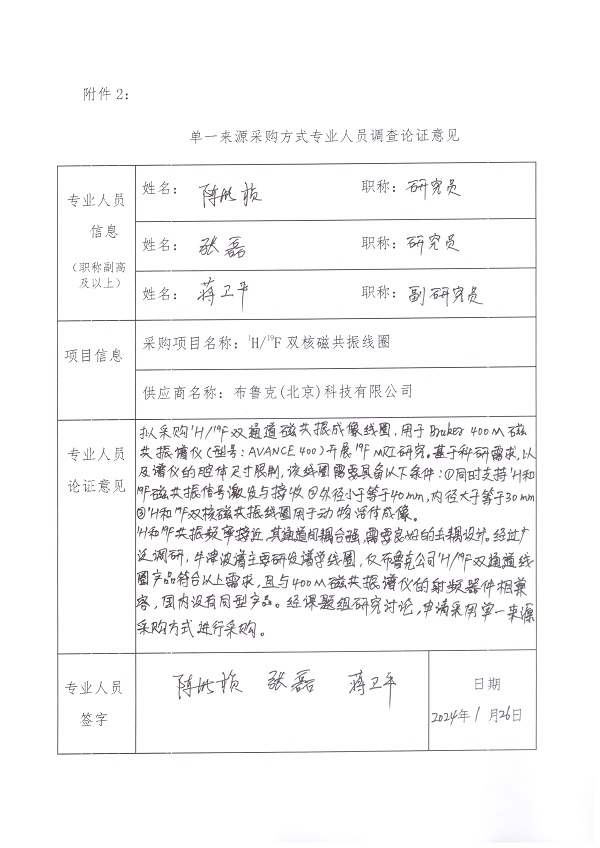 附件2：
单一来源采购方式专业人员调查论证意见
专业人员
信息
（职称副高
及以上）
姓名： 职称：研究员
姓名：张磊 职称：研究员
姓名：蒋卫平 职称：副研究员
项目信息
采购项目名称：¹H/¹⁹F双核磁共振线圈
供应商名称：布鲁克(北京)科技有限公司
专业人员
论证意见
拟采购¹H/¹⁹F双通道磁共振成像线圈，用于Bruker 400M磁
共振谱仪(型号：AVANCE 400)开展¹⁹F MRI研究。基于科研需求，以
及谱仪的腔体尺寸限制，该线圈需要具备以下条件：①同时支持¹H和
¹⁹F磁共振信号激发与接收②外径小于等于40mm，内径大于等于30mm
③¹H和¹⁹F双核磁共振线圈用于动物活体成像。
¹H和¹⁹F共振频率接近，其通道间耦合强，需要良好的去耦设计。经过广
泛调研，牛津波谱主要研发谱学线圈，仅布鲁克公司¹H/¹⁹F双通道线
圈产品符合以上需求，且与400M磁共振谱仪的射频器件相兼
容，国内没有同型产品。经课题组研究讨论，申请采用单一来源
采购方式进行采购。
专业人员
签字
张磊 蒋卫平
日期
2024年1月26日